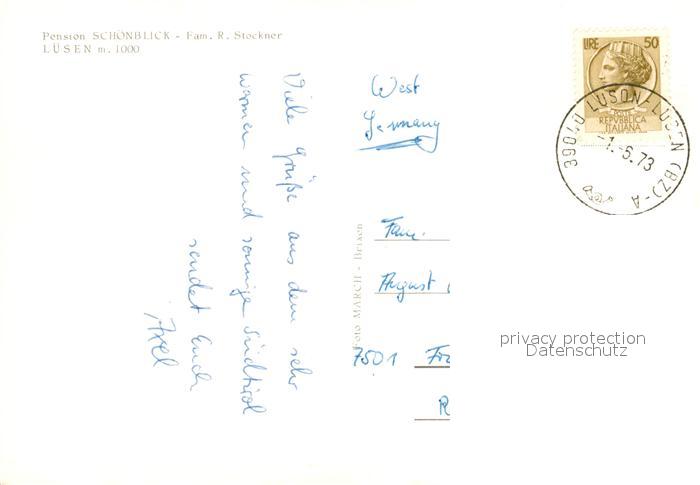 Pension SCHÖNBLICK - Fam. R. Stockner
LÜSEN m. 1000
Viele Grüße aus dem sehr
warmen und sonnige Südtirol
sendet Euch
Axel
Foto MARCH - Brixen
West
Germany
Fam.
August
7501
R
LIRE 50
POSTE
REPVBBLICA
ITALIANA
39040 LUSON-LÜSEN (BZ)-A
-1.-6.73
privacy protection
Datenschutz